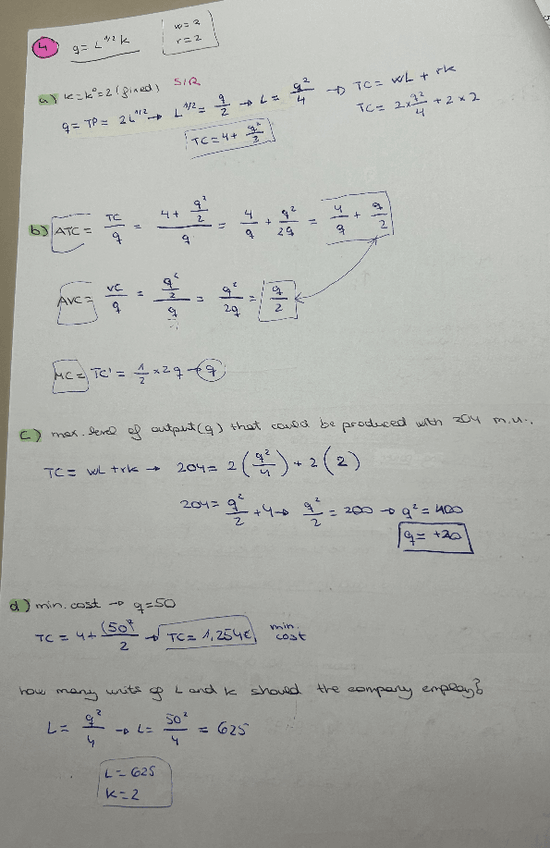 4 q = L^1/2 k
w = 2
r = 2
a) k = k⁰ = 2 (fixed) S/R
q = TP = 2L^1/2 → L^1/2 = q/2 → L = q²/4 → TC = wL + rk
TC = 2 × q²/4 + 2 × 2
TC = 4 + q²/2
b) ATC = TC/q = (4 + q²/2)/q = 4/q + q²/2q = 4/q + q/2
AVC = VC/q = (q²/2)/q = q²/2q = q/2
MC = TC' = 1/2 × 2q → q
c) max. level of output (q) that could be produced with 204 m.u.
TC = wL + rk → 204 = 2 (q²/4) + 2 (2)
204 = q²/2 + 4 → q²/2 = 200 → q² = 400
q = +20
d) min. cost → q = 50
TC = 4 + (50)²/2 → TC = 1,254€ min. cost
how many units of L and k should the company employ?
L = q²/4 → L = 50²/4 = 625
L = 625
k = 2